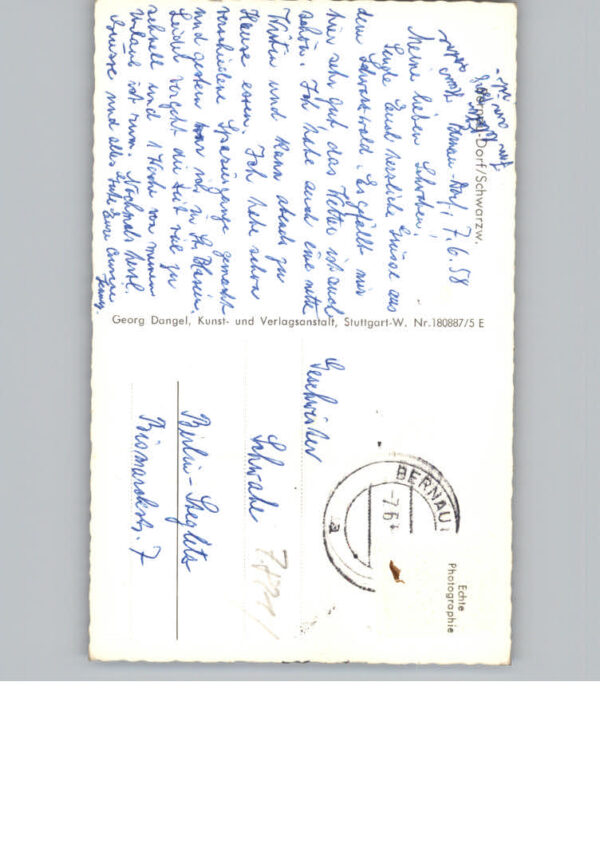 Bernau-Dorf/Schwarzw.
Bernau-Dorf, 7.6.58
Meine lieben Schwabes!
Sende Euch herzliche Grüsse aus
dem Schwarzwald. Es gefällt mir
hier sehr gut, das Wetter ist auch
schön. Ich habe auch eine nette
Wirtin und kann abends zu
Hause essen. Ich habe schon
verschiedene Spaziergänge gemacht
und gestern war ich in St. Blasien.
Leider vergeht die Zeit viel zu
schnell und 1 Woche von meinem
Urlaub ist rum. Nochmals herzl.
Grüsse und alles Gute Eure
Georg Dangel, Kunst- und Verlagsanstalt, Stuttgart-W. Nr. 180887/5 E
Geschwister
Schwabe
Berlin-Steglitz
Bismarckstr. 7
BERNAU
-7.6.
a
Echte
Photographie